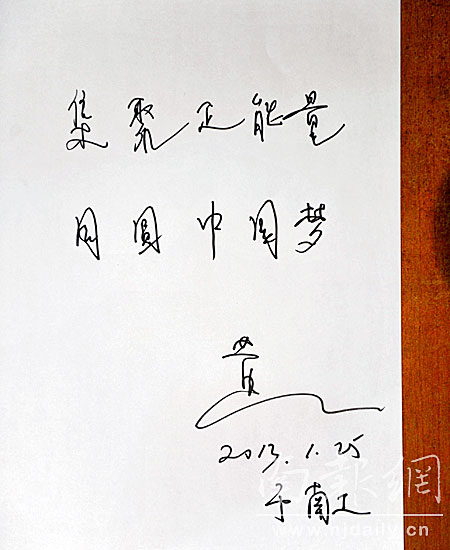 集聚正能量
同圓中国梦
2013.1.25
于南工
南報網
www.njdaily.cn